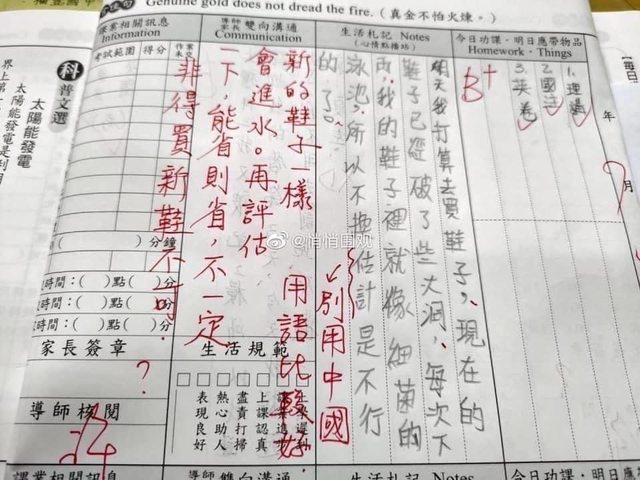 Genuine gold does not dread the fire.（真金不怕火煉。）
今日功課・明日應帶物品
Homework・Things
1. 理
2. 國
3. 英卷
年
月
B+
生活札記 Notes
（心情點播站）
明天我打算去買鞋子，現在的
鞋子已經破了些大洞，每次下
雨，我的鞋子裡就像細菌的
泳池，所以不換估計是不行
的了。
別用中國
用語比較好
導師
家長
雙向溝通
Communication
新的鞋子一樣
會進水。再評估
一下，能省則省，不一定
非得買新鞋不可。
課業相關訊息
Information
考試範圍
得分
作業未交
分鐘
時間：（ ）點（ ）分
時間：（ ）點（ ）分
時間：（ ）點（ ）分
家長簽章
？
導師核閱
生活規範
上課認真
盡責打掃
熱心助人
表現良好
科普文選
太陽能發電
太陽能發電是利用
界上第一
@悄悄围观
課業相關訊息
導師
雙向溝通
生活札記 Notes
今日功課・明日應
【每日